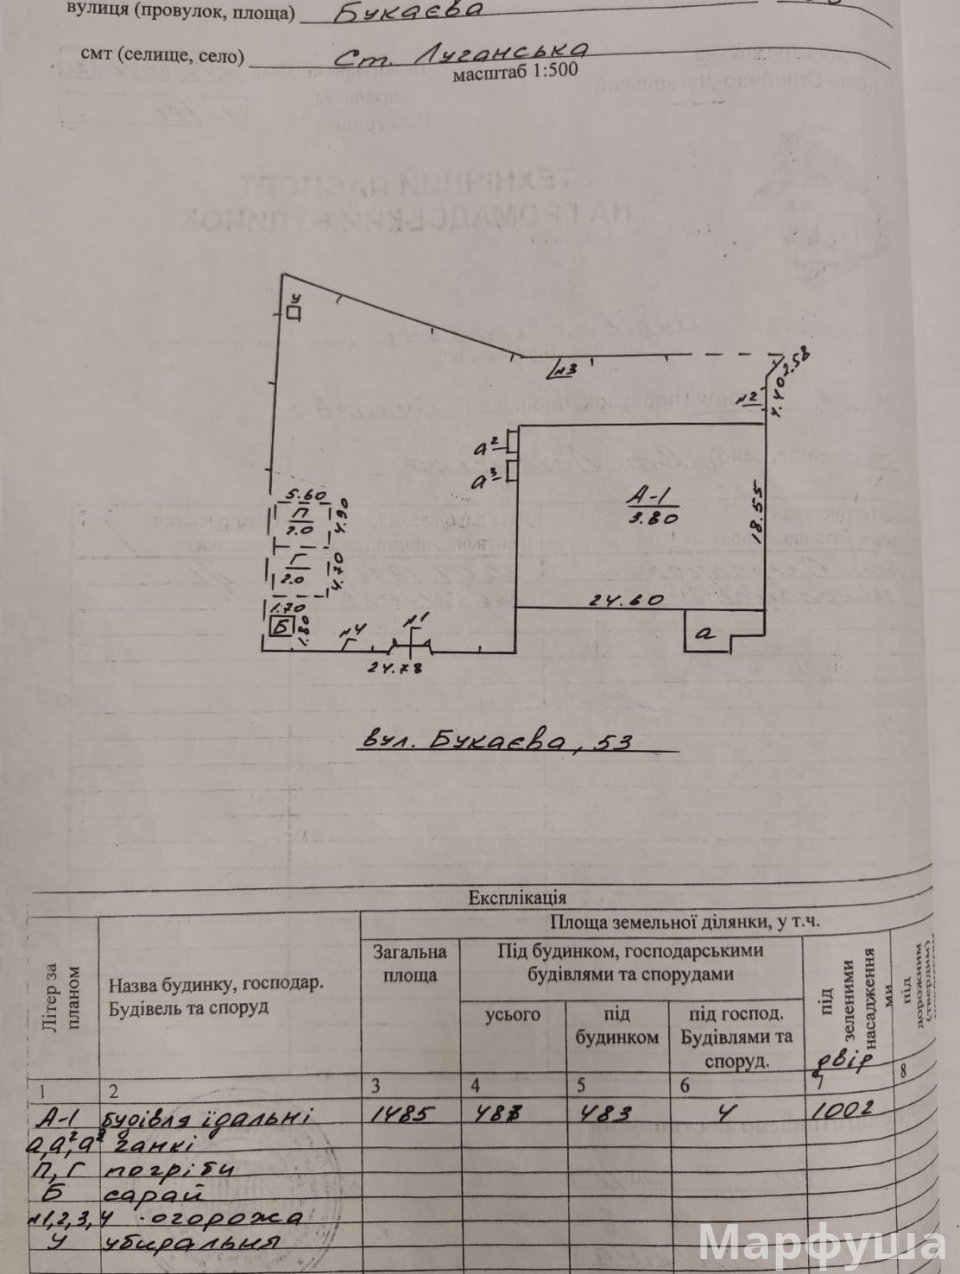 вулиця (провулок, площа) Букаєва
смт (селище, село) Ст. Луганська
масштаб 1:500
ТЕХНІЧНИЙ ПАСПОРТ
НА ГРОМАДСЬКИЙ БУДИНОК
У
№3
2.58
4.40
№2
а²
а³
А-1
3.80
18.55
5.60
П
2.0
4.90
Г
2.0
4.70
24.60
1.70
Б
1.80
№4
№1
а
24.78
вул. Букаєва, 53
Експлікація
Літер за планом
Назва будинку, господар. Будівель та споруд
Площа земельної ділянки, у т.ч.
Загальна площа
Під будинком, господарськими будівлями та спорудами
усього
під будинком
під господ. Будівлями та споруд.
під зеленими насадження ми
двір
під дорожним (твердим)
1 2 3 4 5 6 7 8
А-1 будівля їдальні 1485 487 483 4 1002
а, а², а³ ганкі
П, Г погріби
Б сарай
№1,2,3,4 огорожа
У убиральня
Марфуша